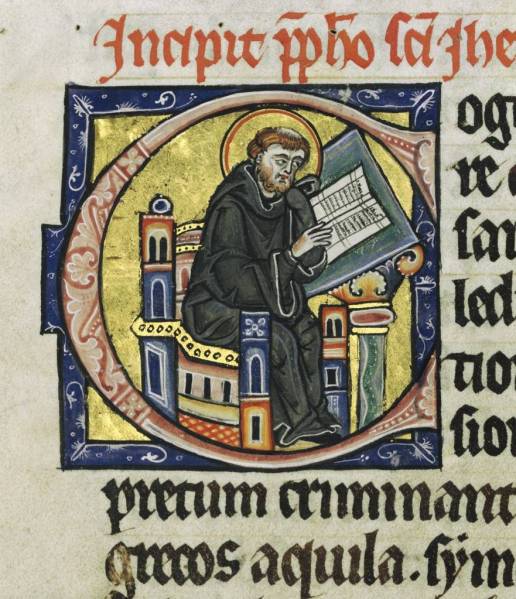 Incipit p̄pho sc̄i Jhe
Cog
re
sar
led
tio
sion
pretum criminant
grecos aquila. sym